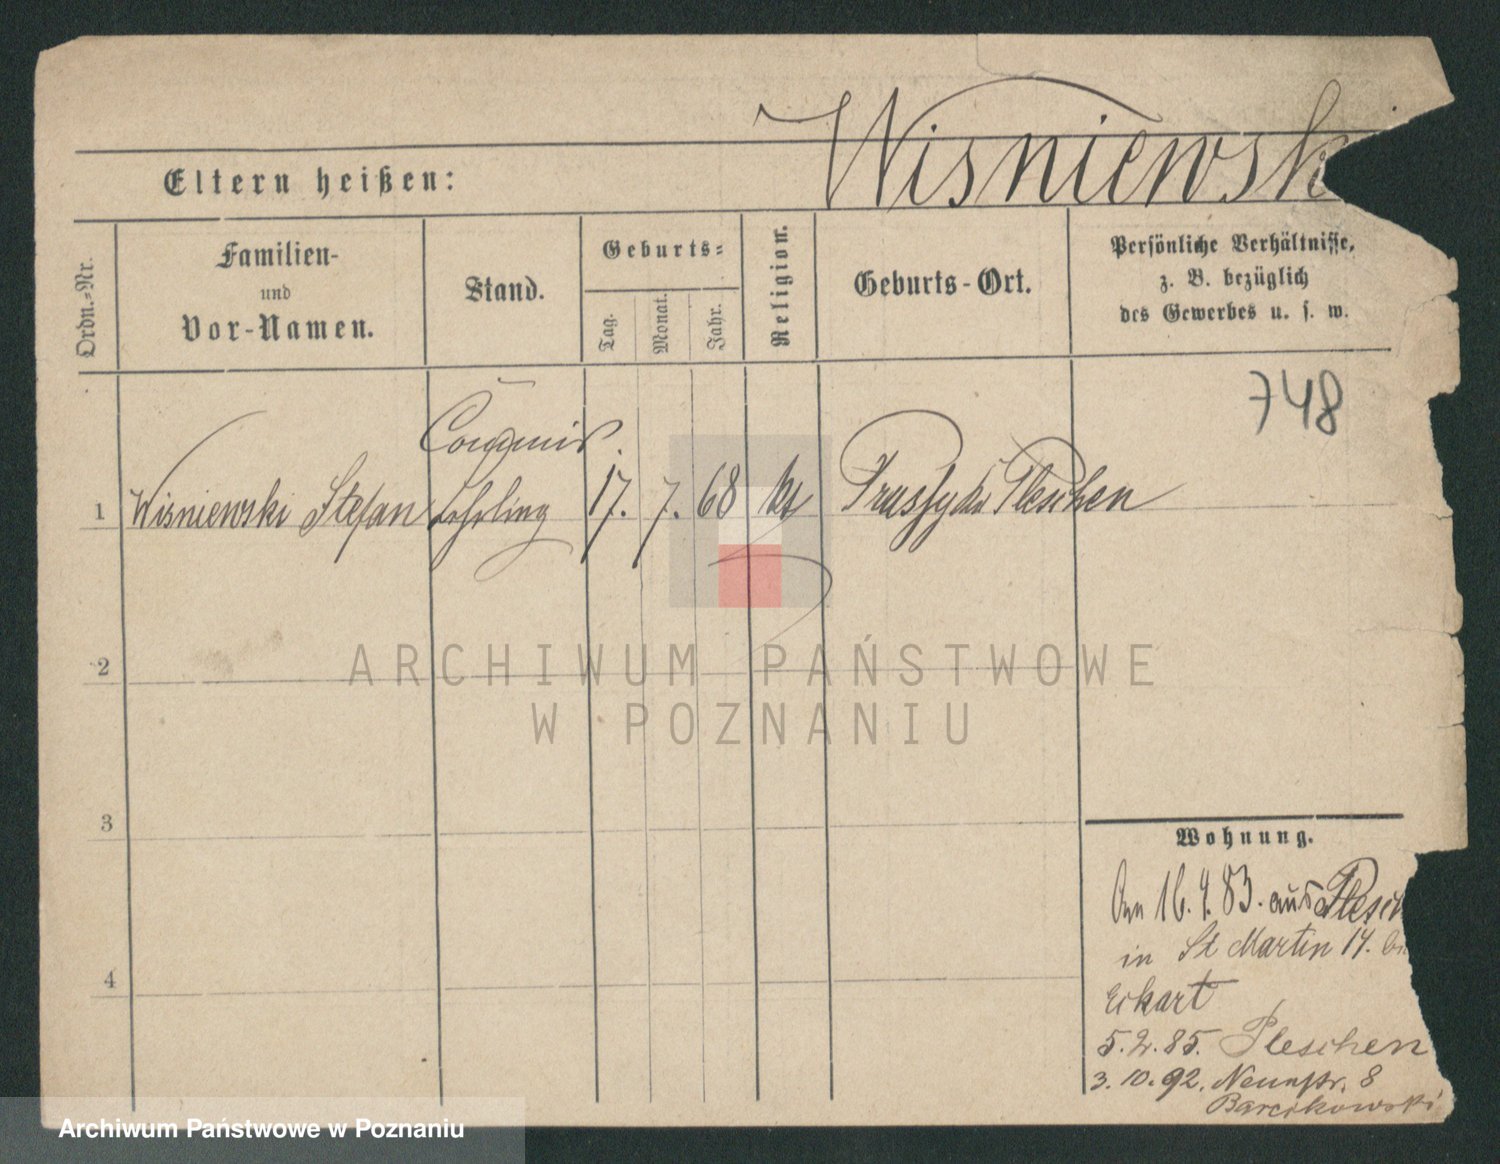 Wisniewsk
Eltern heißen:
Ordn.-Nr.
Familien-
und
Vor-Namen.
Stand.
Geburts-
Tag.
Monat.
Jahr.
Religion.
Geburts-Ort.
Persönliche Verhältnisse,
z. B. bezüglich
des Gewerbes u. s. w.
748
Commis.
1 Wisniewski Stefan Lehrling 17. 7. 68 Pleschen
2
ARCHIWUM PAŃSTWOWE
W POZNANIU
3
Wohnung.
16. 4. 83. aus Plesch
in St Martin 14.
4
Eckart
5. 2. 85. Pleschen
3. 10. 92. Neuestr. 8
Barcikowski
Archiwum Państwowe w Poznaniu